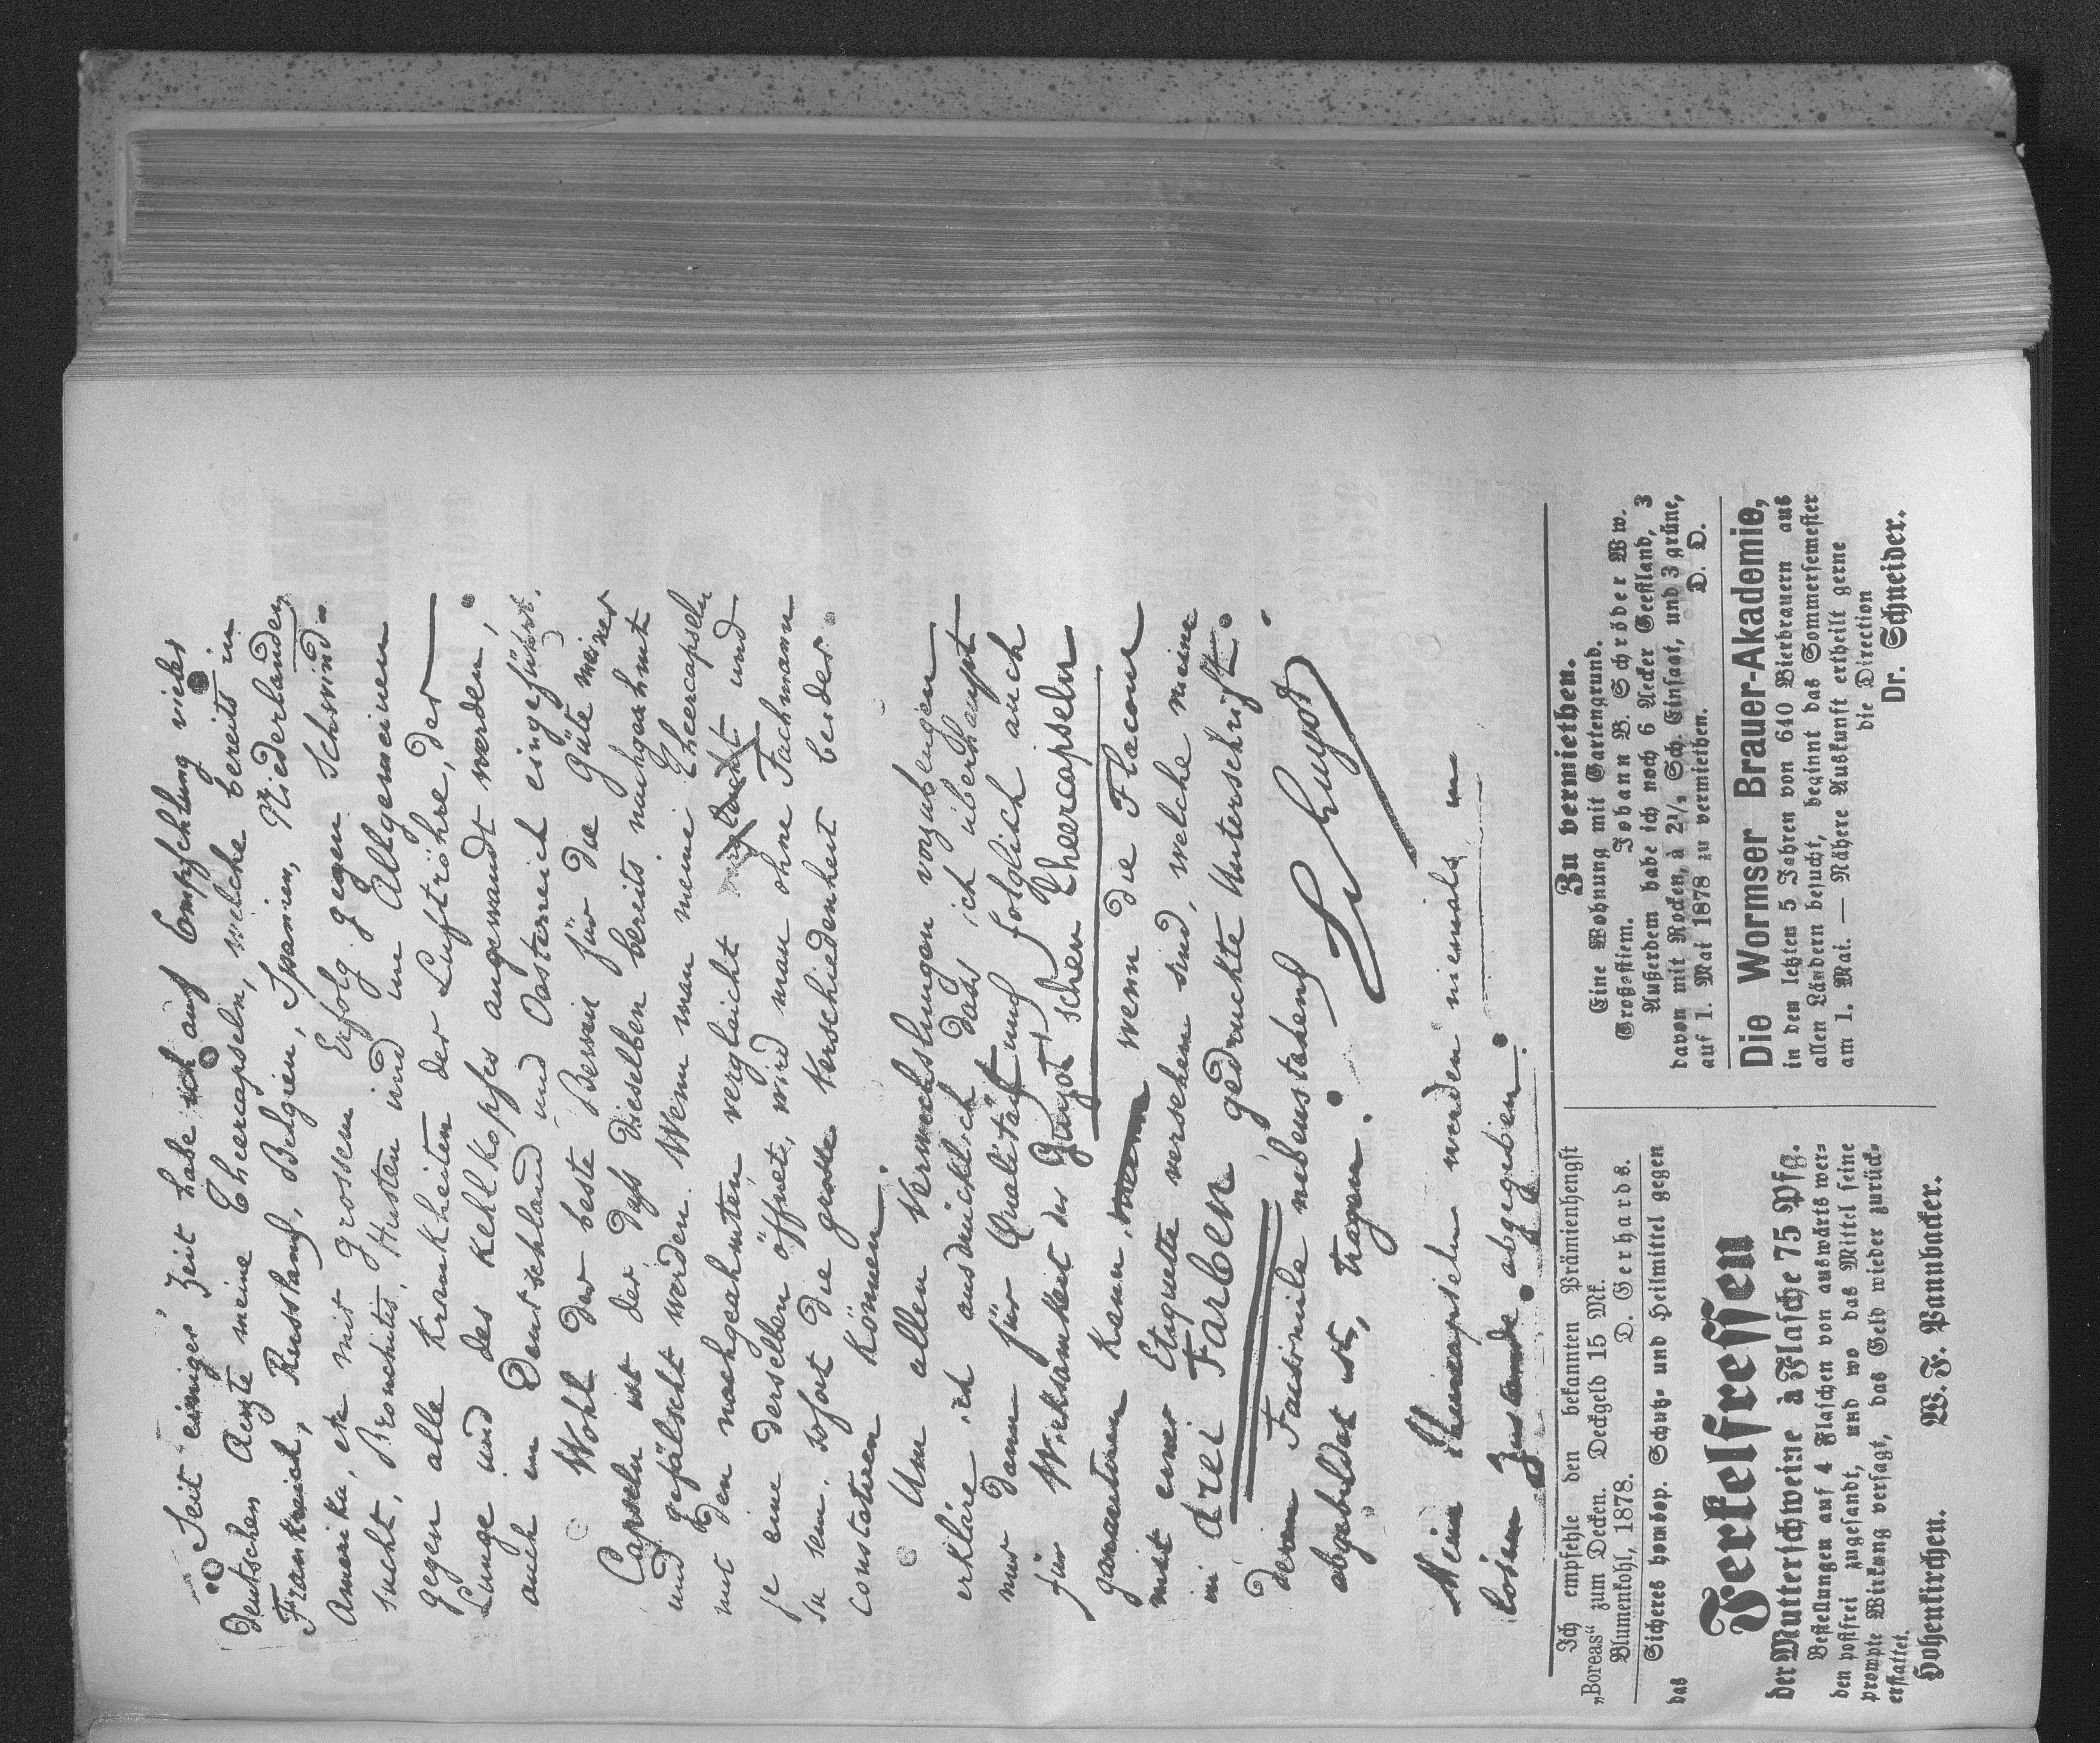 Seit einiger Zeit habe ich auf Empfehlung vieler
deutschen Aerzte meine Theercapseln, welche bereits in
Frankreich, Russland, Belgien, Spanien, Niederlanden,
Amerika, etc mit grossem Erfolg gegen Schwind-
sucht, Bronchitis, Husten und im Allgemeinen
gegen alle Krankheiten der Luftröhre, der
Lunge und des Kehlkopfes angewandt werden,
auch in Deutschland und Oesterreich eingeführt.
Wohl der beste Beweis für die Güte meiner
Capseln ist der, dass dieselben bereits nachgeahmt
und gefälscht werden. Wenn man meine Theercapseln
mit den nachgeahmten vergleicht und
je eine derselben öffnet, wird man ohne Fachmann
zu sein, sofort die grosse Verschiedenheit beider
constatiren können.
Um allen Verwechslungen vorzubeugen
erkläre ich ausdrücklich dass ich überhaupt
nur dann für Qualität und folglich auch
für Wirksamkeit der Guyot'schen Theercapseln
garantiren kann, wenn die Flacons
mit einer Etiquette versehen sind, welche meine
in drei Farben gedruckte Unterschrift.
deren Facsimile nebenstehend
abgebildet ist, tragen.
Guyot
Meine Theercapseln werden niemals in
losem Zustande abgegeben.
Ich empfehle den bekannten Prämienhengst
„Boreas“ zum Decken. Deckgeld 15 Mk.
Blumenkohl, 1878. D. Gerhards.
Sicheres homöop. Schutz- und Heilmittel gegen
das
Ferkelfressen
der Mutterschweine à Flasche 75 Pfg.
Bestellungen auf 4 Flaschen von auswärts wer-
den postfrei zugesandt, und wo das Mittel seine
prompte Wirkung versagt, das Geld wieder zurück-
erstattet.
Hohenkirchen. W. F. Pannbacker.
Zu vermiethen.
Eine Wohnung mit Gartengrund.
Großostiem. Johann B. Schröder Ww.
Außerdem habe ich noch 6 Aecker Geestland, 3
davon mit Rocken, à 2½ Sch. Einsaat, und 3 grüne,
auf 1. Mai 1878 zu vermiethen. D. O.
Die Wormser Brauer-Akademie,
in den letzten 5 Jahren von 640 Bierbrauern aus
allen Ländern besucht, beginnt das Sommersemester
am 1. Mai. — Nähere Auskunft ertheilt gerne
die Direction
Dr. Schneider.